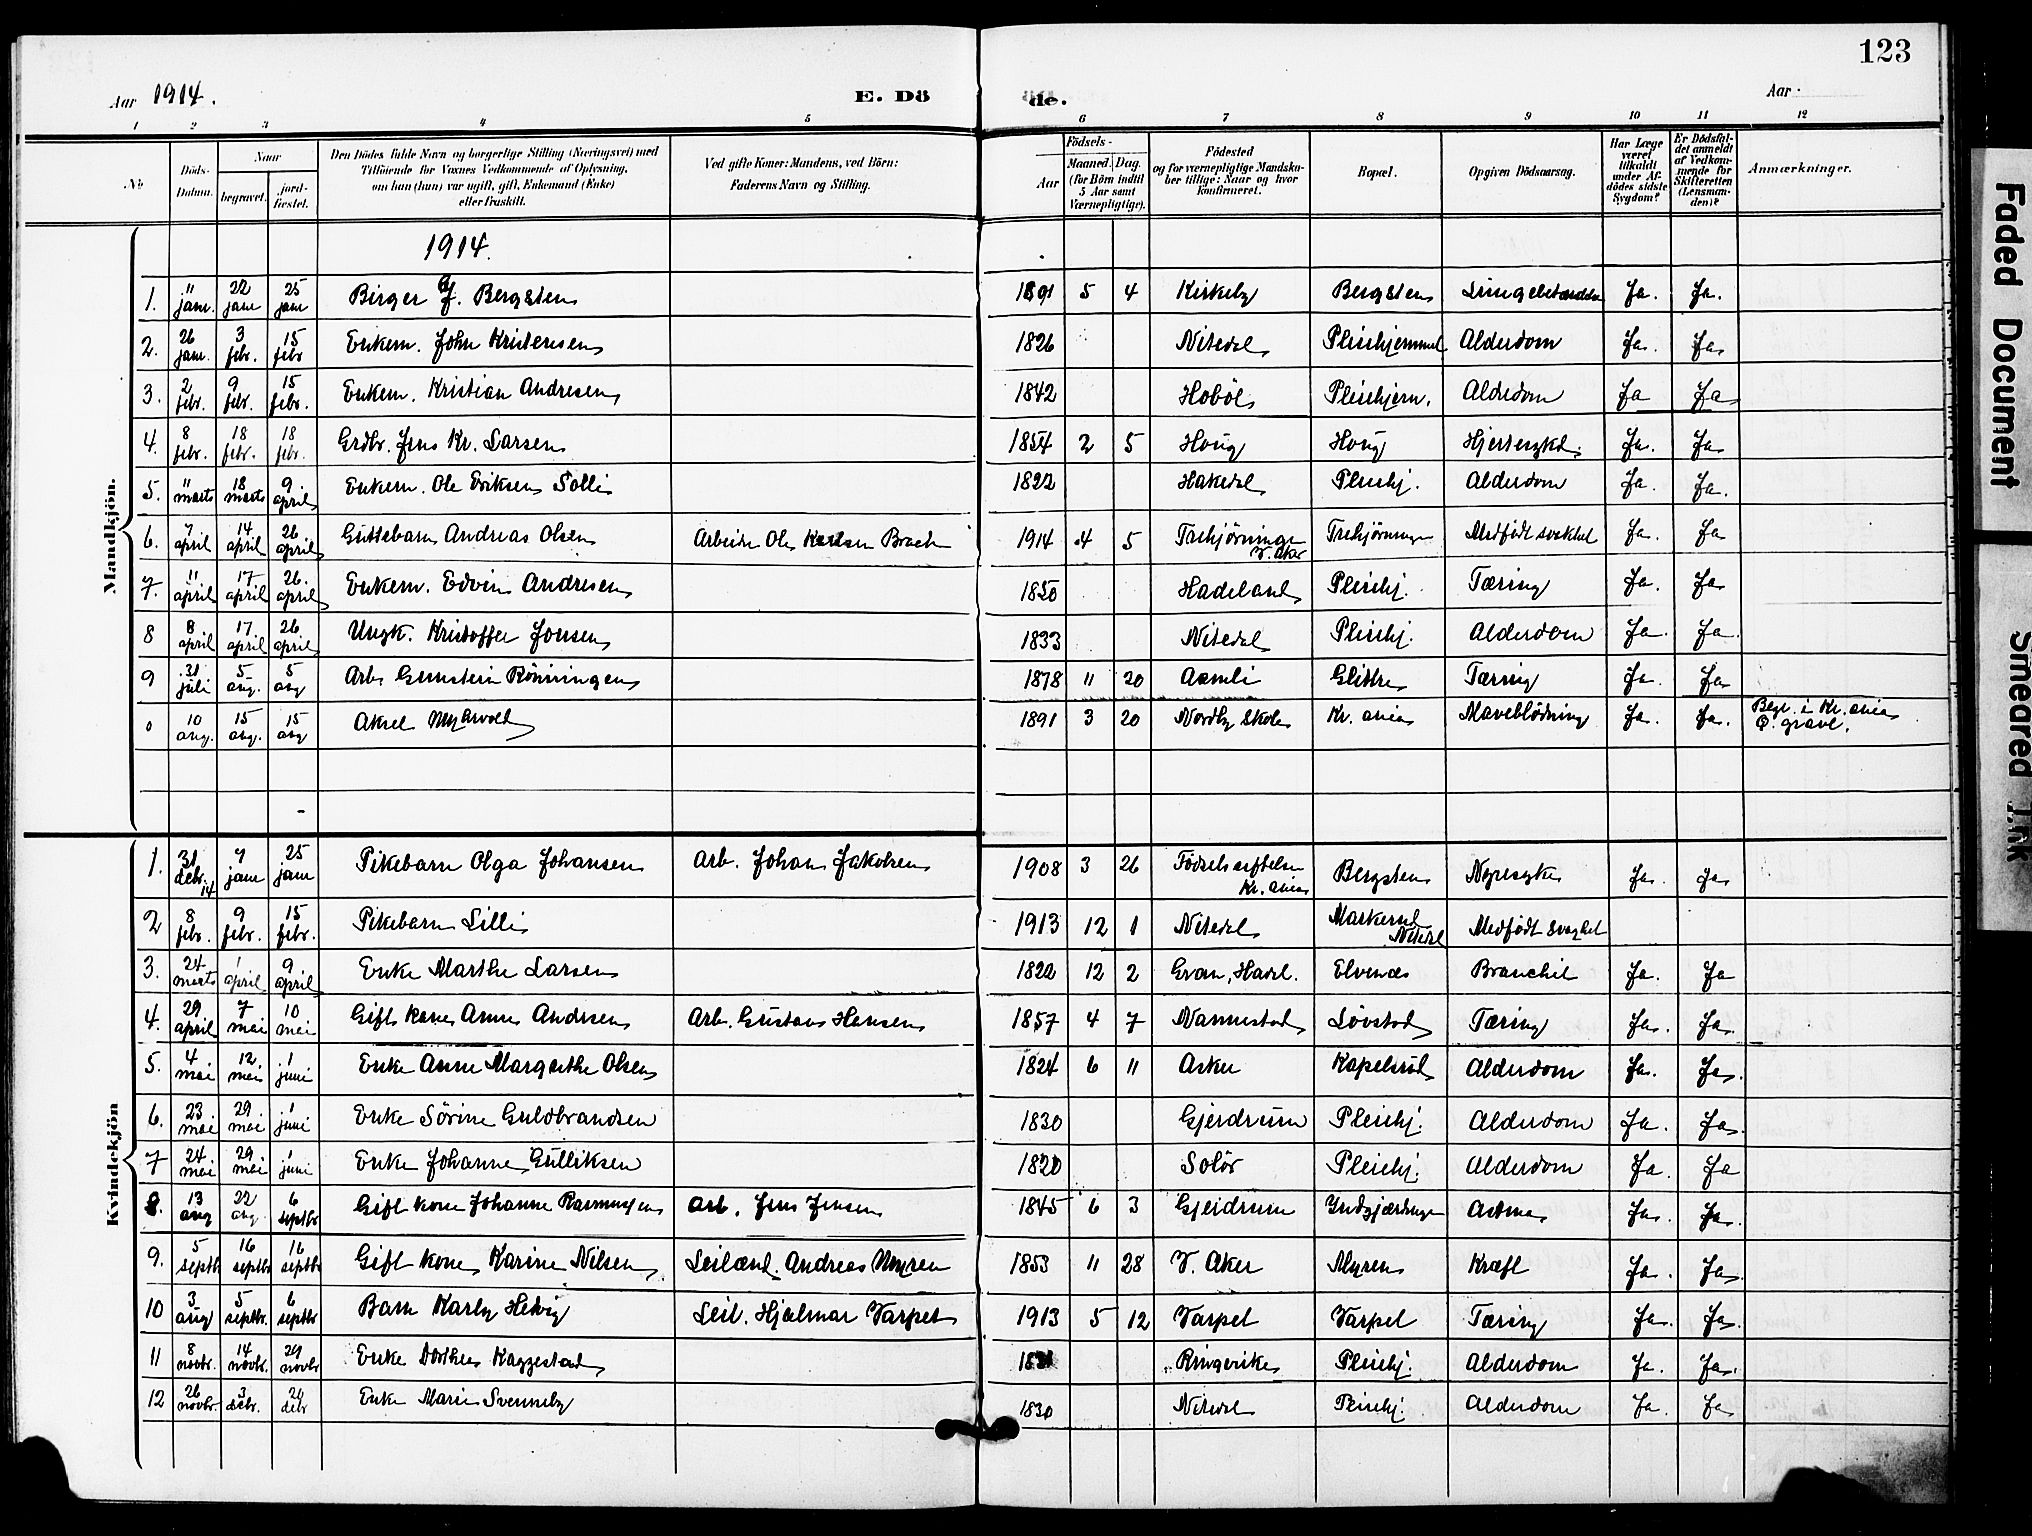 123
Aar 1914.
E. Dö
de.
Aar
1 2 3 4 5 6 7 8 9 10 11 12
No
Döds-Datum.
Naar
begravet.
jord-fæstet.
Den Dödes fulde Navn og borgerlige Stilling (Næringsvei) med Tilföiende for Voxnes Vedkommende af Oplysning, om han (hun) var ugift, gift, Enkemand (Enke) eller fraskilt.
Ved gifte Koner: Mandens, ved Börn: Faderens Navn og Stilling.
Födsels-
Aar
Maaned. Dag.
(for Börn indtil 5 Aar samt Værnepligtige).
Födested og for værnepligtige Mandskaber tillige: Naar og hvor konfirmeret.
Bopæl.
Opgiven Dödsaarsag.
Har Læge været tilkaldt under Afdödes sidste Sygdom?
Er Dödsfaldet anmeldt af Vedkommende for Skifteretten (Lensmanden)?
Anmærkninger.
Mandkjön.
1914.
1. 11 jan. 22 jan 25 jan Birger J. Bergsten 1891 5 4 Kirkeby Bergsten Ja. Ja.
2. 26 jan. 3 febr. 15 febr Enkem. John Kristensen 1826 Nitedal Pleiehjemmet Alderdom Ja. Ja
3. 2 febr. 9 febr. 15 febr. Enkem. Kristian Andresen 1842 Hoböl Pleiehjem. Alderdom Ja Ja
4. 8 febr. 18 febr. 18 febr. Grdbr. Jens Kr. Larsen 1854 2 5 Houg Houg Ja. Ja
5. 11 marts 18 marts 9 april Enkem. Ole Eriksen Solli 1822 Hakedal Pleiehj. Alderdom Ja. Ja.
6. 7 april 14 april 26 april Guttebarn Andreas Olsen Arbeider Ole Karlsen 1914 4 5 V. Aker Medfödt svakhet Ja. Ja
7. 11 april 17 april 26. april Enkem. Edvin Andresen 1850 Hadeland Pleiehj. Tæring Ja. Ja
8 8 april 17 april 26 april Ungk. Kristoffer Jonsen 1833 Nitedal Pleiehj. Alderdom Ja. Ja.
9 31 juli 5 aug. 5 aug Arb. Gunstein Rönningen 1878 11 20 Aamli Glittre Tæring Ja. Ja
0 10 aug. 15 aug. 15 aug Aksel Myhrvold 1891 3 20 Nordby skole Kr.ania Maveblödning Ja. Ja. Begr. i Kr.ania
Ö. gravl.
Kvindekjön
1. 31 debr. 14 7 jan 25 jan Pikebarn Olga Johansen Arb. Johan Jakobsen 1908 3 26 Födselsstiftelsen Kr.ania Bergsten Nyresyke Ja. Ja
2 8 febr. 9 febr. 15 febr. Pikebarn Lilli 1913 12 1 Nitedal Markerud Nitedal Medfödt svaghet
3. 24 marts 1 april 9 april Enke Marthe Larsen 1822 12 2 Gran, Hadel. Elvenæs Bronchit Ja. Ja
4. 29 april 7 mai 10 mai Gift kone Anne Andersen Arb. Gustav Hansen 1857 4 7 Nannestad Lövstad Tæring Ja. Ja.
5. 4 mai 12 mai 1 juni Enke Anne Margrethe Olsen 1824 6 11 Asker Kapelsrud Alderdom Ja. Ja.
6. 23 mai 29 mai 1 juni Enke Sörine Guldbrandsen 1830 Gjerdrum Pleiehj. Alderdom Ja. Ja.
7 24 mai 29 mai 1 juni Enke Johanne Gulliksen 1820 Solör Pleiehj. Alderdom Ja Ja
8. 13 aug 22 aug. 6 septbr Gift kone Johanne Rasmussen Arb. Jens Jensen 1845 6 3 Gjerdrum Astma Ja. Ja.
9. 5 septbr 16 septbr 16 septbr Gift kone Karine Nilsen Leilænd. Andreas Myren 1853 11 28 V. Aker Myren Kræft Ja. Ja.
10 3 aug 5 septbr. 6 septbr Barn Karly Helvig Leil. Hjalmar Varpet 1913 5 12 Varpet Varpet Tæring Ja. Ja.
11 8 novbr. 14 novbr. 29 novbr Enke Dorthea Kaggestad Ringerike Pleiehj. Alderdom Ja. Ja.
12 26 novbr. 3 debr. 20 debr Enke Marie Svenneby 1830 Nitedal Pleiehj. Alderdom Ja. Ja
Faded Document
Smeared Ink